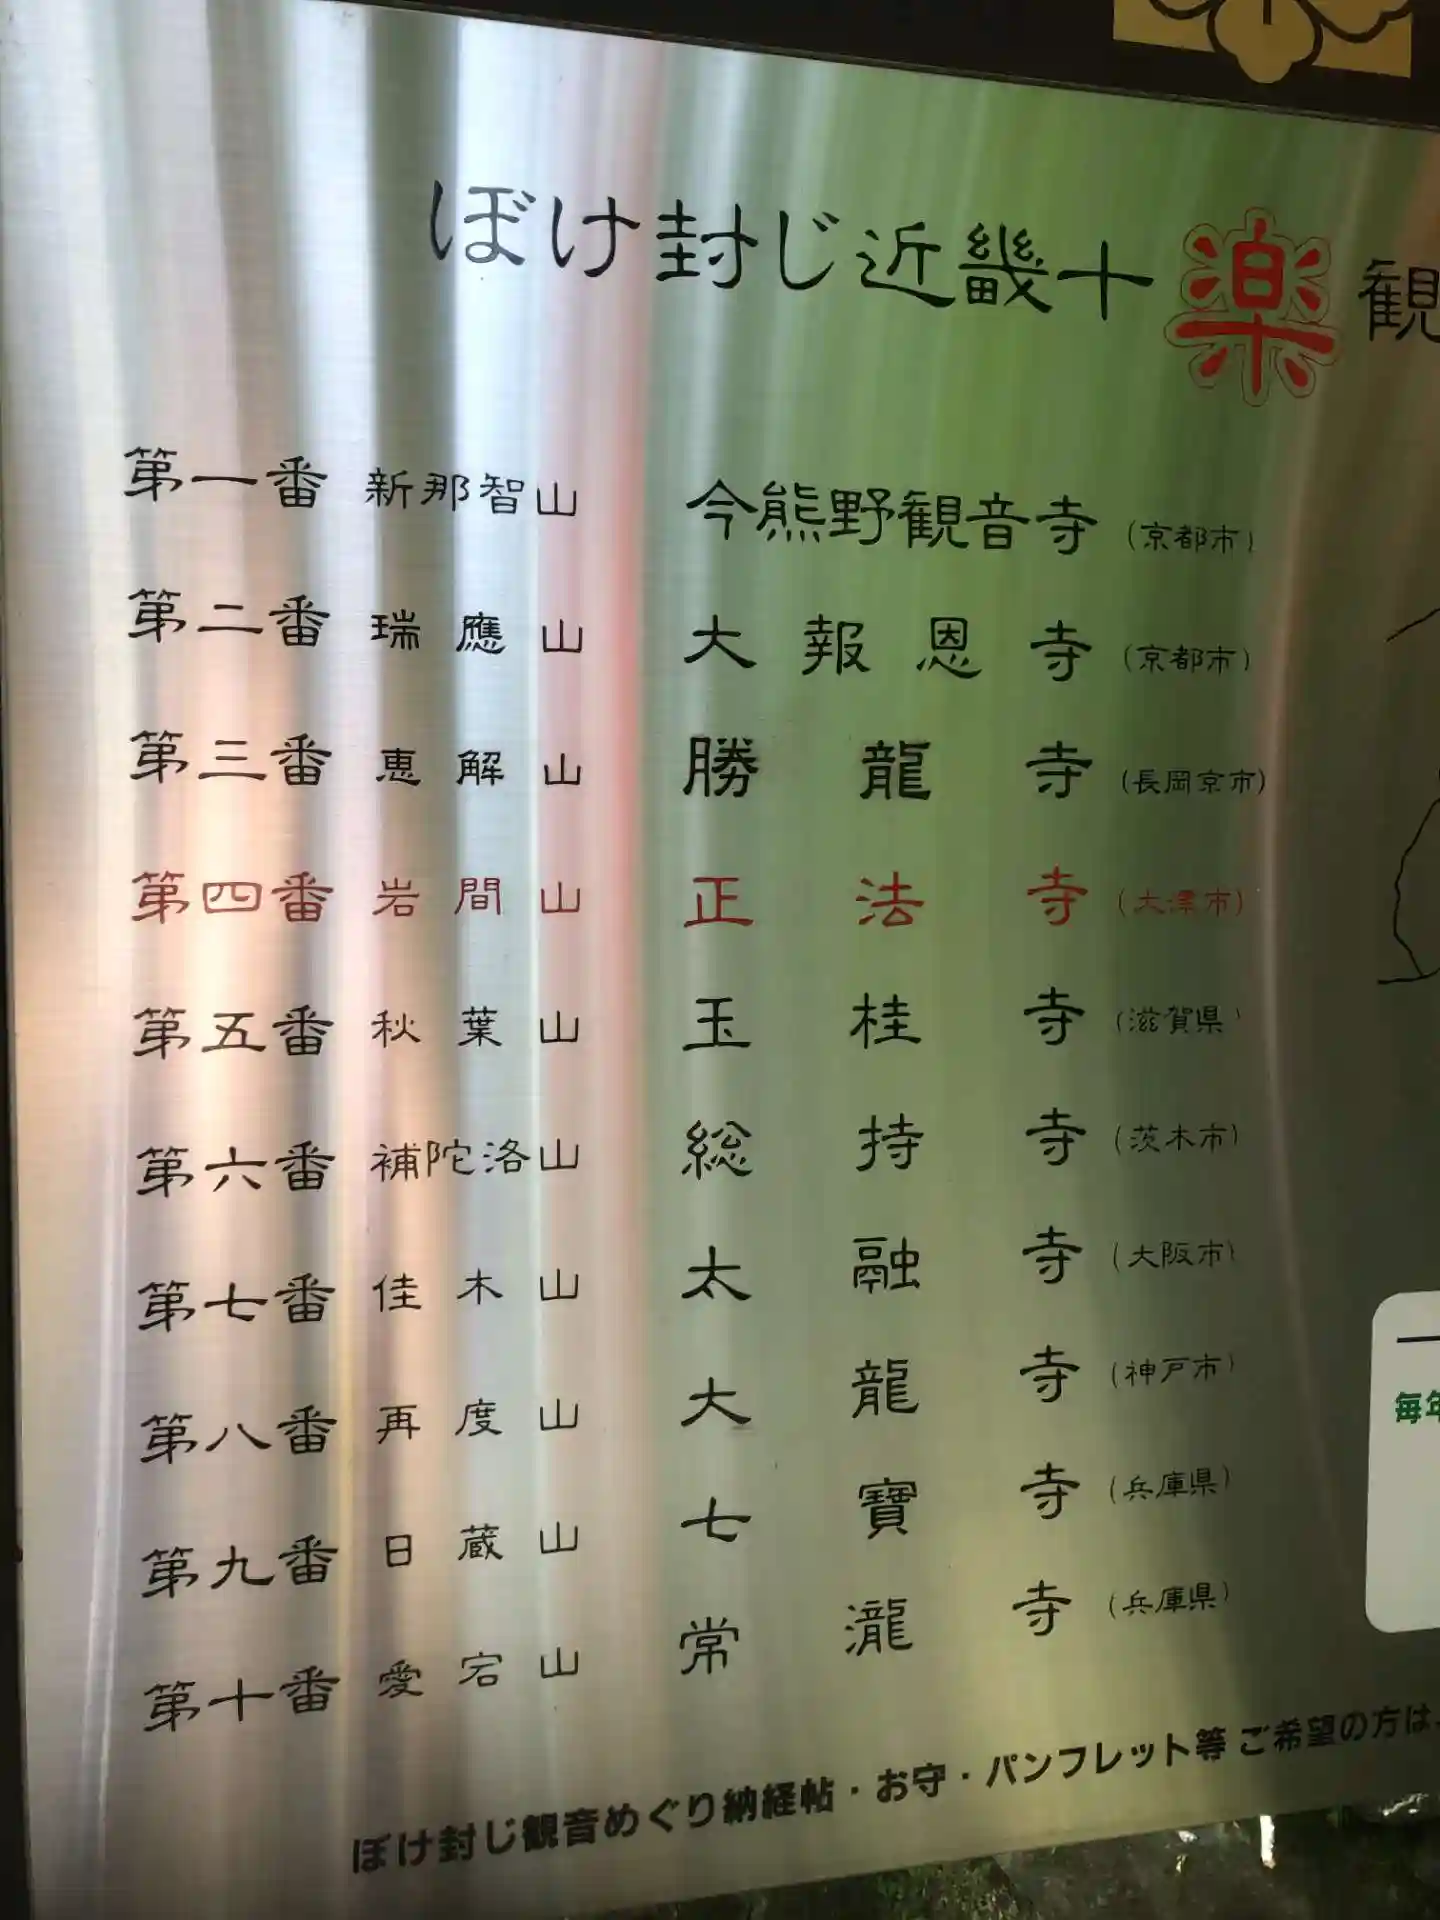 ぼけ封じ近畿十楽観
第一番 新那智山 今熊野観音寺 (京都市)
第二番 瑞應山 大報恩寺 (京都市)
第三番 恵解山 勝龍寺 (長岡京市)
第四番 岩間山 正法寺 (大津市)
第五番 秋葉山 玉桂寺 (滋賀県)
第六番 補陀洛山 総持寺 (茨木市)
第七番 佳木山 太融寺 (大阪市)
第八番 再度山 大龍寺 (神戸市)
第九番 日蔵山 七寶寺 (兵庫県)
第十番 愛宕山 常瀧寺 (兵庫県)
毎年
ぼけ封じ観音めぐり納経帖・お守・パンフレット等ご希望の方は、